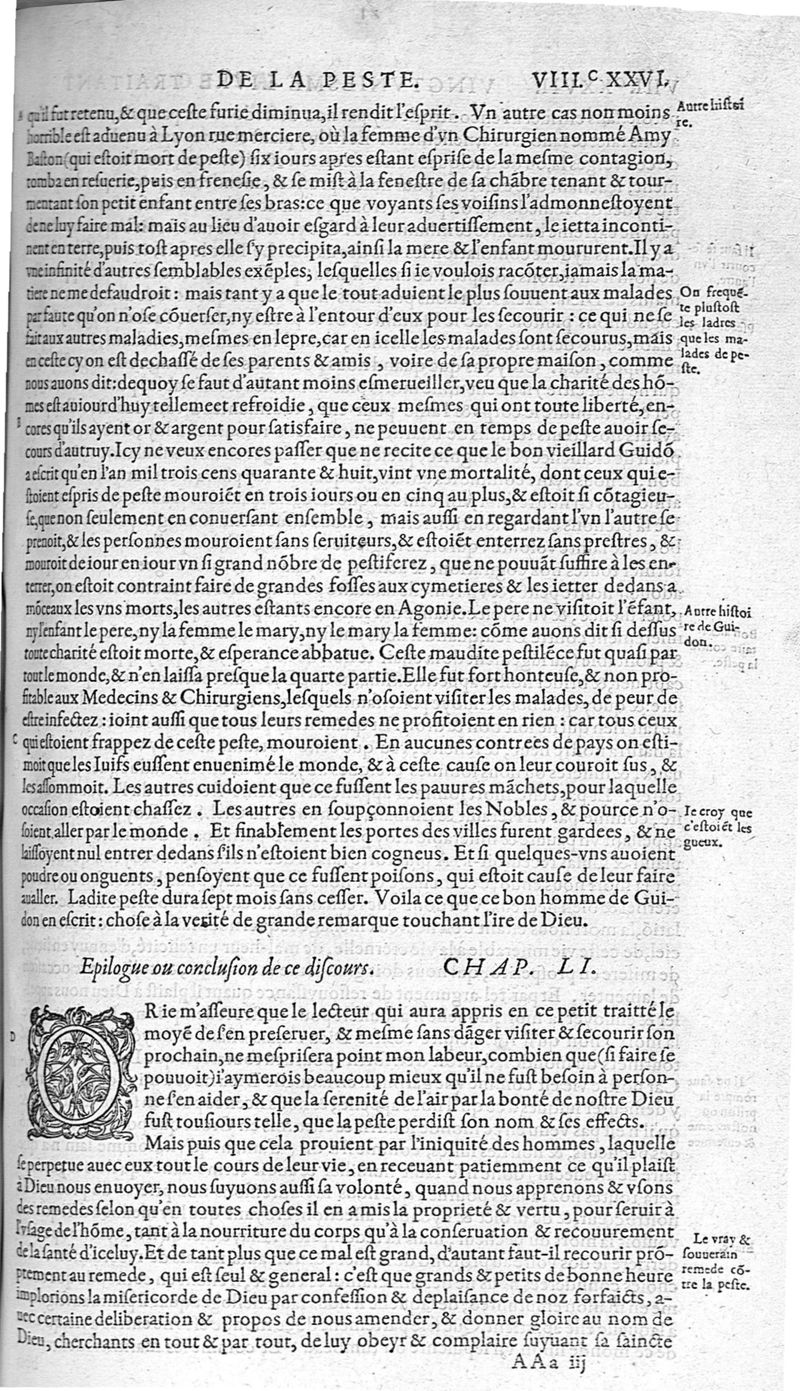 DE LA PESTE. VIII.C XXVI.
qu'il fut retenu, & que ceste furie diminua, il rendit l'esprit. Vn autre cas non moins
Autre histoi
re.
horrible est aduenu à Lyon rue merciere, où la femme d'vn Chirurgien nommé Amy
Baston (qui estoit mort de peste) six iours apres estant esprise de la mesme contagion,
tomba en resuerie, puis en frenesie, & se mist à la fenestre de sa chãbre tenant & tour-
mentant son petit enfant entre ses bras: ce que voyants ses voisins l'admonnestoyent
de ne luy faire mal: mais au lieu d'auoir esgard à leur aduertissement, le ietta inconti-
nent en terre, puis tost apres elle s'y precipita, ainsi la mere & l'enfant moururent. Il y a
vne infinité d'autres semblables exẽples, lesquelles si ie voulois racõter, iamais la ma-
tiere ne me defaudroit: mais tant y a que le tout aduient le plus souuent aux malades
On frequẽ-
te plustost
les ladres
que les ma-
lades de pe-
ste.
par faute qu'on n'ose cõuerser, ny estre à l'entour d'eux pour les secourir: ce qui ne se
fait aux autres maladies, mesmes en lepre, car en icelle les malades sont secourus, mais
en ceste cy on est dechassé de ses parents & amis, voire de sa propre maison, comme
nous auons dit: dequoy se faut d'autant moins esmerueiller, veu que la charité des hõ-
mes est auiourd'huy tellemeet refroidie, que ceux mesmes qui ont toute liberté, en-
B
cores qu'ils ayent or & argent pour satisfaire, ne peuuent en temps de peste auoir se-
cours d'autruy. Icy ne veux encores passer que ne recite ce que le bon vieillard Guidõ
a escrit qu'en l'an mil trois cens quarante & huit, vint vne mortalité, dont ceux qui e-
stoient espris de peste mouroiẽt en trois iours ou en cinq au plus, & estoit si cõtagieu-
se, que non seulement en conuersant ensemble, mais aussi en regardant l'vn l'autre se
prenoit, & les personnes mouroient sans seruiteurs, & estoiẽt enterrez sans prestres, &
mouroit de iour en iour vn si grand nõbre de pestiferez, que ne pouuãt suffire à les en-
terrer, on estoit contraint faire de grandes fosses aux cymetieres & les ietter dedans a
mõceaux les vns morts, les autres estants encore en Agonie. Le pere ne visitoit l'ẽfant,
Autre histoi
re de Gui-
don.
ny l'enfant le pere, ny la femme le mary, ny le mary la femme: cõme auons dit si dessus
toute charité estoit morte, & esperance abbatue. Ceste maudite pestilẽce fut quasi par
tout le monde, & n'en laissa presque la quarte partie. Elle fut fort honteuse, & non pro-
fitable aux Medecins & Chirurgiens, lesquels n'osoient visiter les malades, de peur de
estre infectez: ioint aussi que tous leurs remedes ne profitoient en rien: car tous ceux
C
qui estoient frappez de ceste peste, mouroient. En aucunes contrees de pays on esti-
moit que les Iuifs eussent enuenimé le monde, & à ceste cause on leur couroit sus, &
les assommoit. Les autres cuidoient que ce fussent les pauures mãchets, pour laquelle
occasion estoient chassez. Les autres en soupçonnoient les Nobles, & pource n'o-
Ie croy que
c'estoiẽt les
gueux.
soient aller par le monde. Et finablement les portes des villes furent gardees, & ne
laissoyent nul entrer dedans s'ils n'estoient bien cogneus. Et si quelques-vns auoient
poudre ou onguents, pensoyent que ce fussent poisons, qui estoit cause de leur faire
aualler. Ladite peste dura sept mois sans cesser. Voila ce que ce bon homme de Gui-
don en escrit: chose à la verité de grande remarque touchant l'ire de Dieu.
Epilogue ou conclusion de ce discours. CHAP. LI.
D
OR ie m'asseure que le lecteur qui aura appris en ce petit traitté le
moyẽ de s'en preseruer, & mesme sans dãger visiter & secourir son
prochain, ne mesprisera point mon labeur, combien que (si faire se
pouuoit) i'aymerois beaucoup mieux qu'il ne fust besoin à person-
ne s'en aider, & que la serenité de l'air par la bonté de nostre Dieu
fust tousiours telle, que la peste perdist son nom & ses effects.
Mais puis que cela prouient par l'iniquité des hommes, laquelle
se perpetue auec eux tout le cours de leur vie, en receuant patiemment ce qu'il plaist
à Dieu nous enuoyer, nous suyuons aussi sa volonté, quand nous apprenons & vsons
des remedes selon qu'en toutes choses il en a mis la proprieté & vertu, pour seruir à
l'vsage de l'hõme, tant à la nourriture du corps qu'à la conseruation & recouurement
Le vray &
souuerain
remede cõ-
tre la peste.
de la santé d'iceluy. Et de tant plus que ce mal est grand, d'autant faut-il recourir prõ-
ptement au remede, qui est seul & general: c'est que grands & petits de bonne heure
implorions la misericorde de Dieu par confession & deplaisance de noz forfaicts, a-
uec certaine deliberation & propos de nous amender, & donner gloire au nom de
Dieu, cherchants en tout & par tout, de luy obeyr & complaire suyuant sa saincte
AAa iij